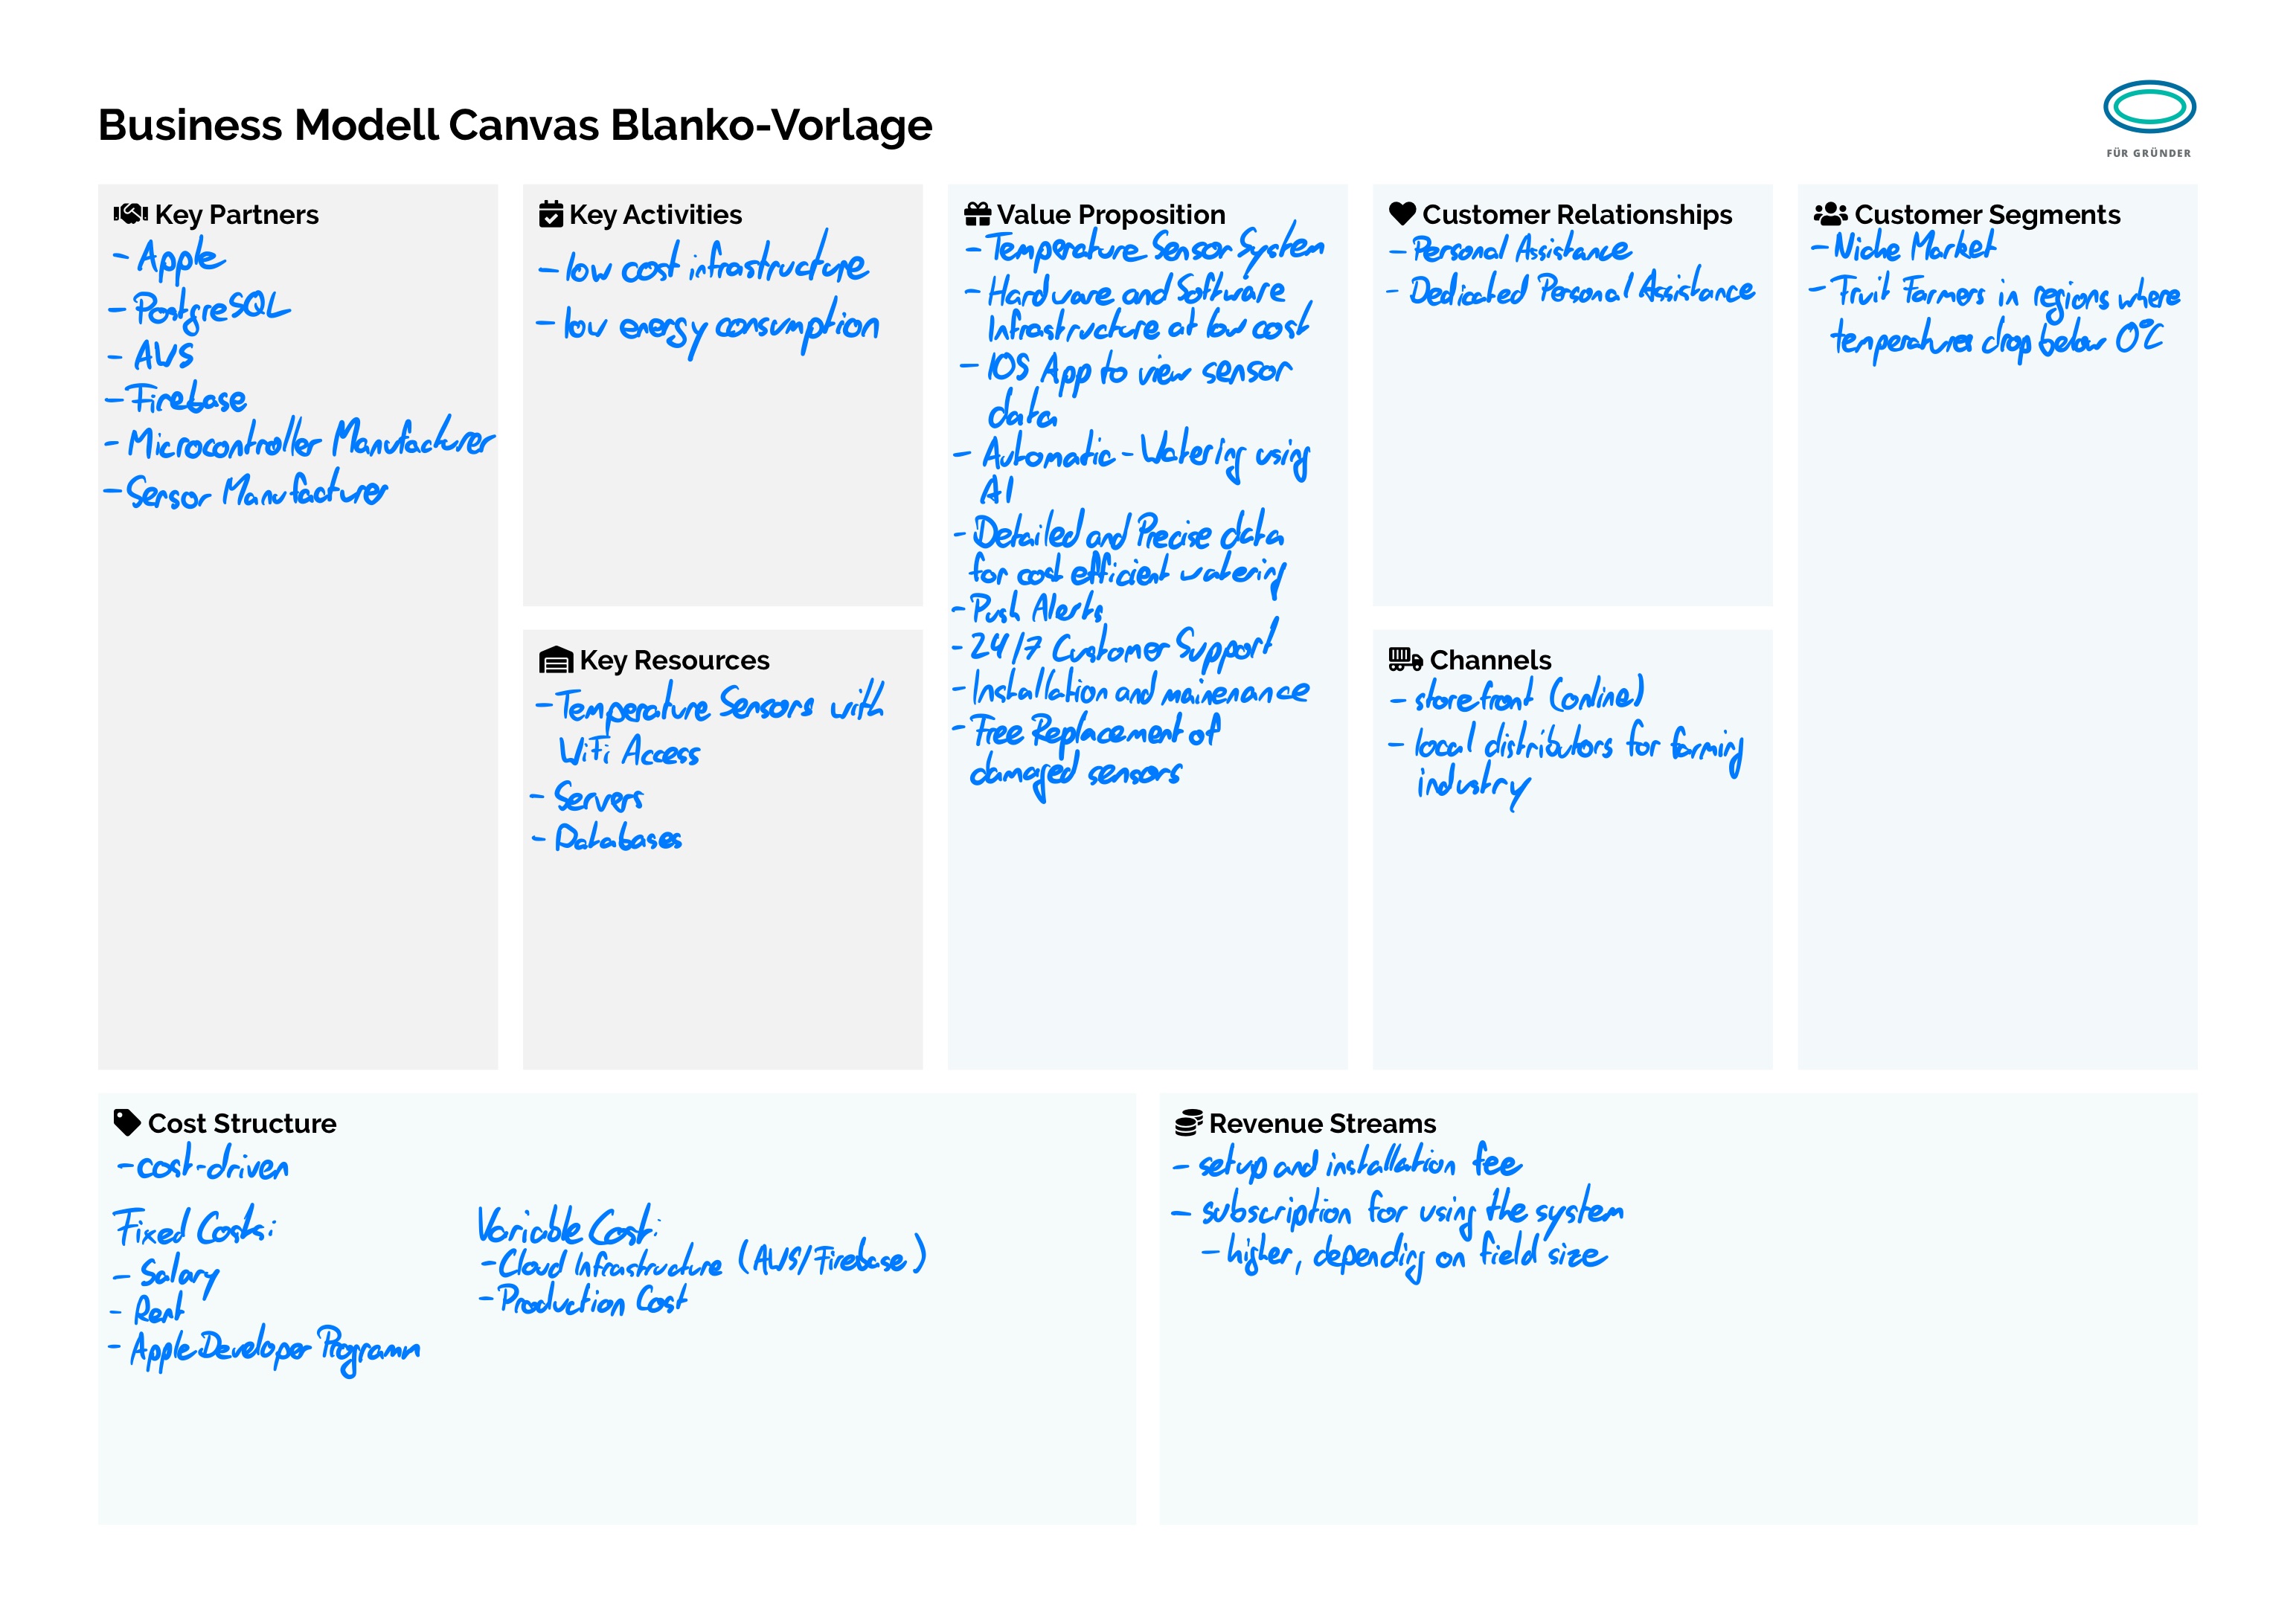 Business Modell Canvas Blanko-Vorlage
FÜR GRÜNDER
Key Partners
- Apple
- PostgreSQL
- AWS
- Firebase
- Microcontroller Manufacturer
- Sensor Manufacturer
Key Activities
- low cost infrastructure
- low energy consumption
Key Resources
- Temperature Sensors with
WiFi Access
- Servers
- Databases
Value Proposition
- Temperature Sensor System
- Hardware and Software
Infrastructure at low cost
- IOS App to view sensor
data
- Automatic-Watering using
AI
- Detailed and Precise data
for cost efficient watering
- Push Alerts
- 24/7 Customer Support
- Installation and mainenance
- Free Replacement of
damaged sensors
Customer Relationships
- Personal Assistance
- Dedicated Personal Assistance
Channels
- storefront (online)
- local distributors for farming
industry
Customer Segments
- Niche Market
- Fruit Farmers in regions where
temperatures drop below 0°C
Cost Structure
- cost-driven
Fixed Costs:
- Salary
- Rent
- Apple Developer Programm
Variable Cost:
- Cloud Infrastructure (AWS/Firebase)
- Production Cost
Revenue Streams
- setup and installation fee
- subscription for using the system
- higher, depending on field size